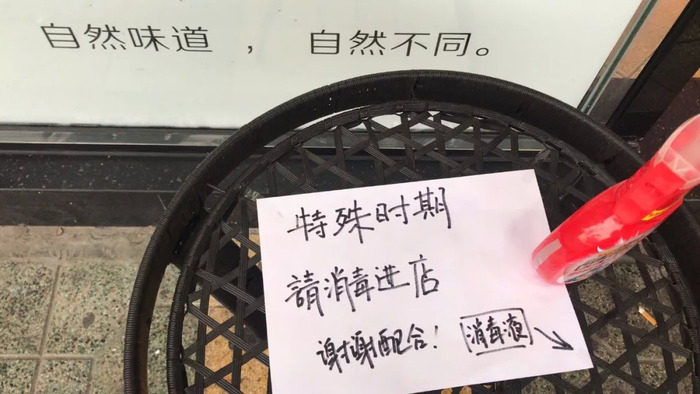 自然味道，自然不同。
特殊时期
請消毒进店
谢谢配合! 消毒液